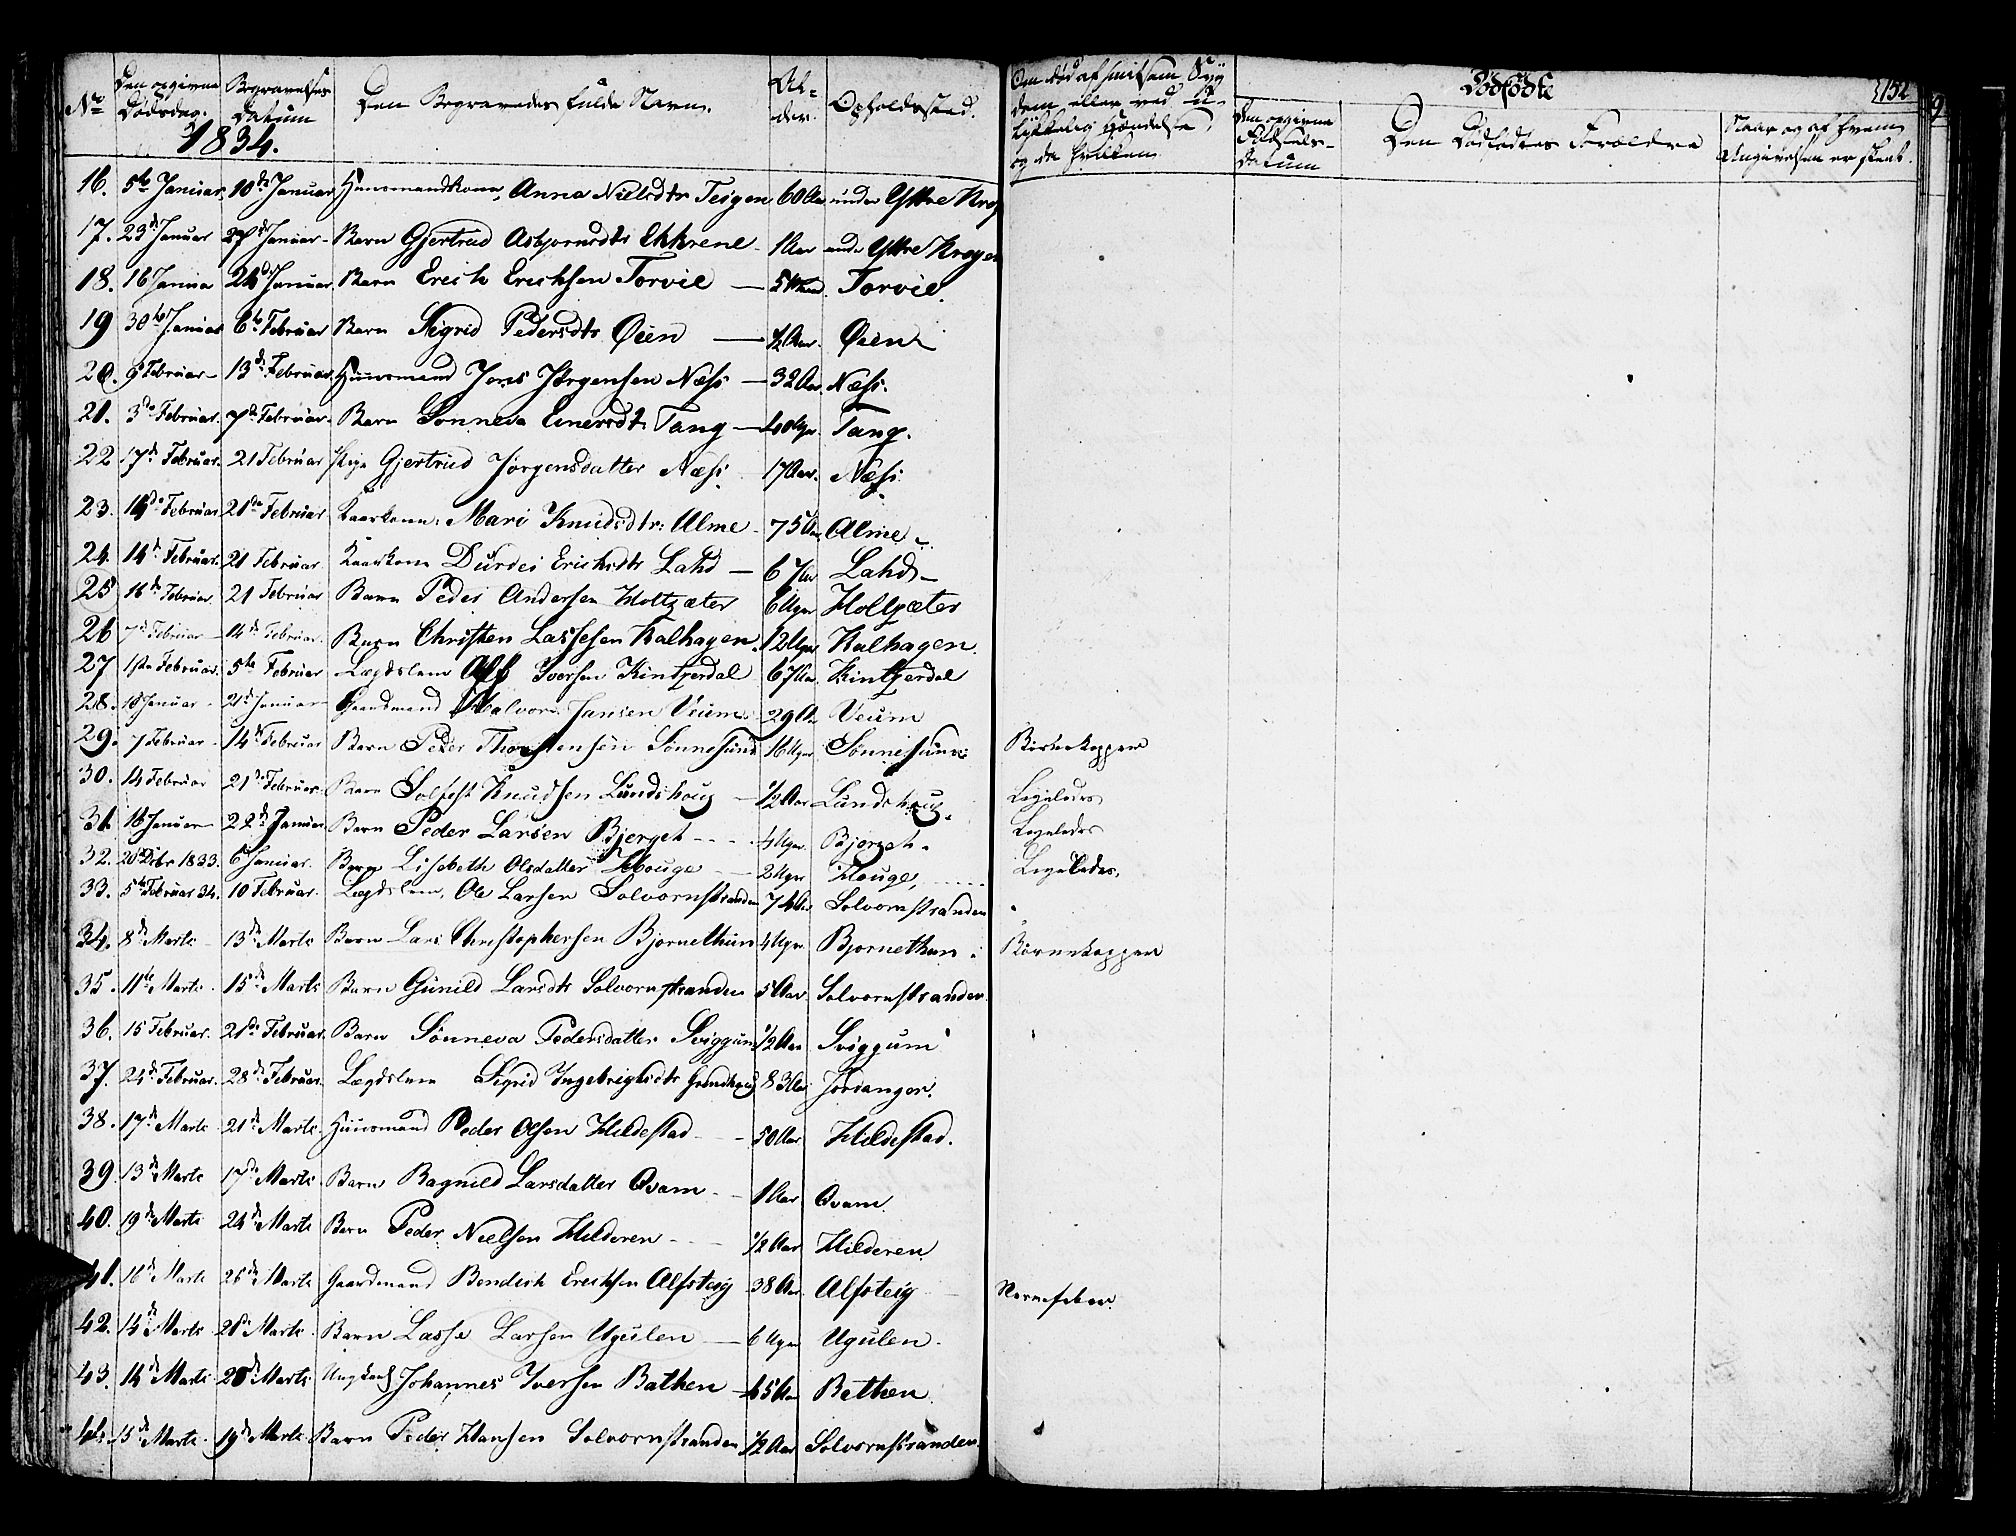 No Den opgivne Dødsdag. Begravelses Datum Den Begravedes fulde Navn. Al-der. Opholdssted. Om død af smitsom Syg dom eller ved U- lykkelig Hændelse, og da hvilken Dødfødte 152
Den opgivne Fødsels- Datum Den Dødfødtes Forældre Naar og af hvem Angivelsen er skeet.
1834.
16. 5te Januar 10de Januar Huusmandskone, Anna Nielsdtr Teigen 60 Aar under Yttre Kro
17. 23de Januar 27de Januar Barn Gjertrud Asbjornsdtr Ekkrene 1 Aar under Yttre Kroge
18. 16 Januar 24de Januar Barn Erich Erichsen Torvie Torvie.
19 30te Januar 6te Februar Barn Sigrid Pedersdtr Øien ½ Aar Øien
20. 9 Februar 13de Februar Huusmand Jens Jørgensen Næss 32 Aar Næss.
21. 3die Februar 7de Februar Barn Sonneva Einersdtr Tang Tang.
22 17de Februar 21 Februar Pige Gjertrud Jörgensdatter Næss 17 Aar. Næss
23. Februar 21de Februar Kaarkone Mari Knudsdtr. Alme 75 Aar Alme
24. 14de Februar. 21 Februar Kaarkone Durdei Erichsdtr Lahd 67 Aar Lahd
25 16de Februar 21 Februar Barn Peder Andersen Holtsæter 6 Uger Holtsæter
26 7de Februar 14de Februar. Barn Christen Lassesen Kalhagen 12 Uger Kalhagen.
27 1ste Februar. 5te Februar Lægdslem Alf Iversen Kintzerdal 67 Aar. Kintzerdal
28. 18 Januar 21de Januar Gaardmand Halvor Jansen Veum 29 Aar Veum
29. 7 Februar 14de Februar Barn Peder Thorstensen Sønnesund 16 Uger Sønnesund Børnekopper
30. 14 Februar 21de Februar Barn Solfest Knudsen Lundshoug ½ Aar Lundshoug. Ligeledes
31. 16 Januar 22de Januar Barn Peder Larsen Bjerget 4 Uger Bjerget. Ligeledes
32. Decbr 1833. 6 Januar. Barn Lisabeth Olsdatter Houge 2 Uger Houge, Ligeledes.
33. 5te Februar 34. 10 Februar. Lægdslem, Ole Larsen Solvornstranden 74 Aar Solvornstranden
34. 8de Marts 13de Marts Barn Lars Christophersen Bjornethun 4 Uger Bjornethun Børnekopper
35. 11te Marts 15de Marts Barn Gunild Larsdtr Solvornstranden 5 Aar Solvornstranden.
36. 15 Februar. 21de Februar. Barn Sönneva Pedersdatter Sviggum ½ Aar Sviggum
37. 24de Februar. 28de Februar. Lægdslem Sigrid Ingebrigtsdtr 83 Aar Joranger.
38. 17de Marts 21de Marts Huusmand Peder Olsen Hildestad 50 Aar Hildestad.
39 13de Marts 17de Marts Barn Ragnild Larsdatter Qvam 1 Aar Qvam.
40. 19de Marts 24de Marts Barn Peder Nielsen Hilderen ½ Aar Hilderen.
41. 16de Marts 26de Marts Gaardmand Bendich Erichsen Alfsteig 38 Aar Alfsteig Nervefeber.
42. 14de Marts 21de Marts Barn Lasse Larsen Ugulen 6 Uger Ugulen.
43. 14de Marts Marts Ungkarl Johannes Iversen Bathen Bathen
44. 15de Marts 19de Marts Barn Peder Hansen Solvornstranden ½ Aar Solvornstranden.